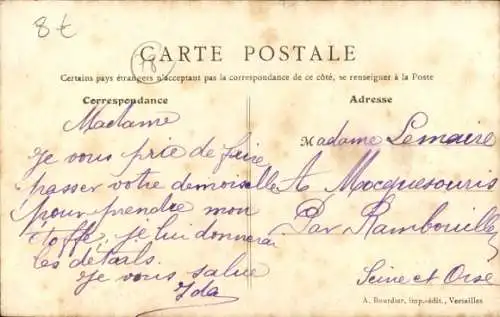 8 €
70
CARTE POSTALE
Certains pays étrangers n'acceptant pas la correspondance de ce côté, se renseigner à la Poste
Correspondance
Madame
Je vous prie de faire
passer votre demoiselle
pour prendre mon
étoffe, je lui donnerai
les détails.
Je vous salue
Ida
Adresse
Madame Lemaire
A Mocquesouris
Par Rambouillet
Seine et Oise
A. Bourdier, imp.-édit., Versailles